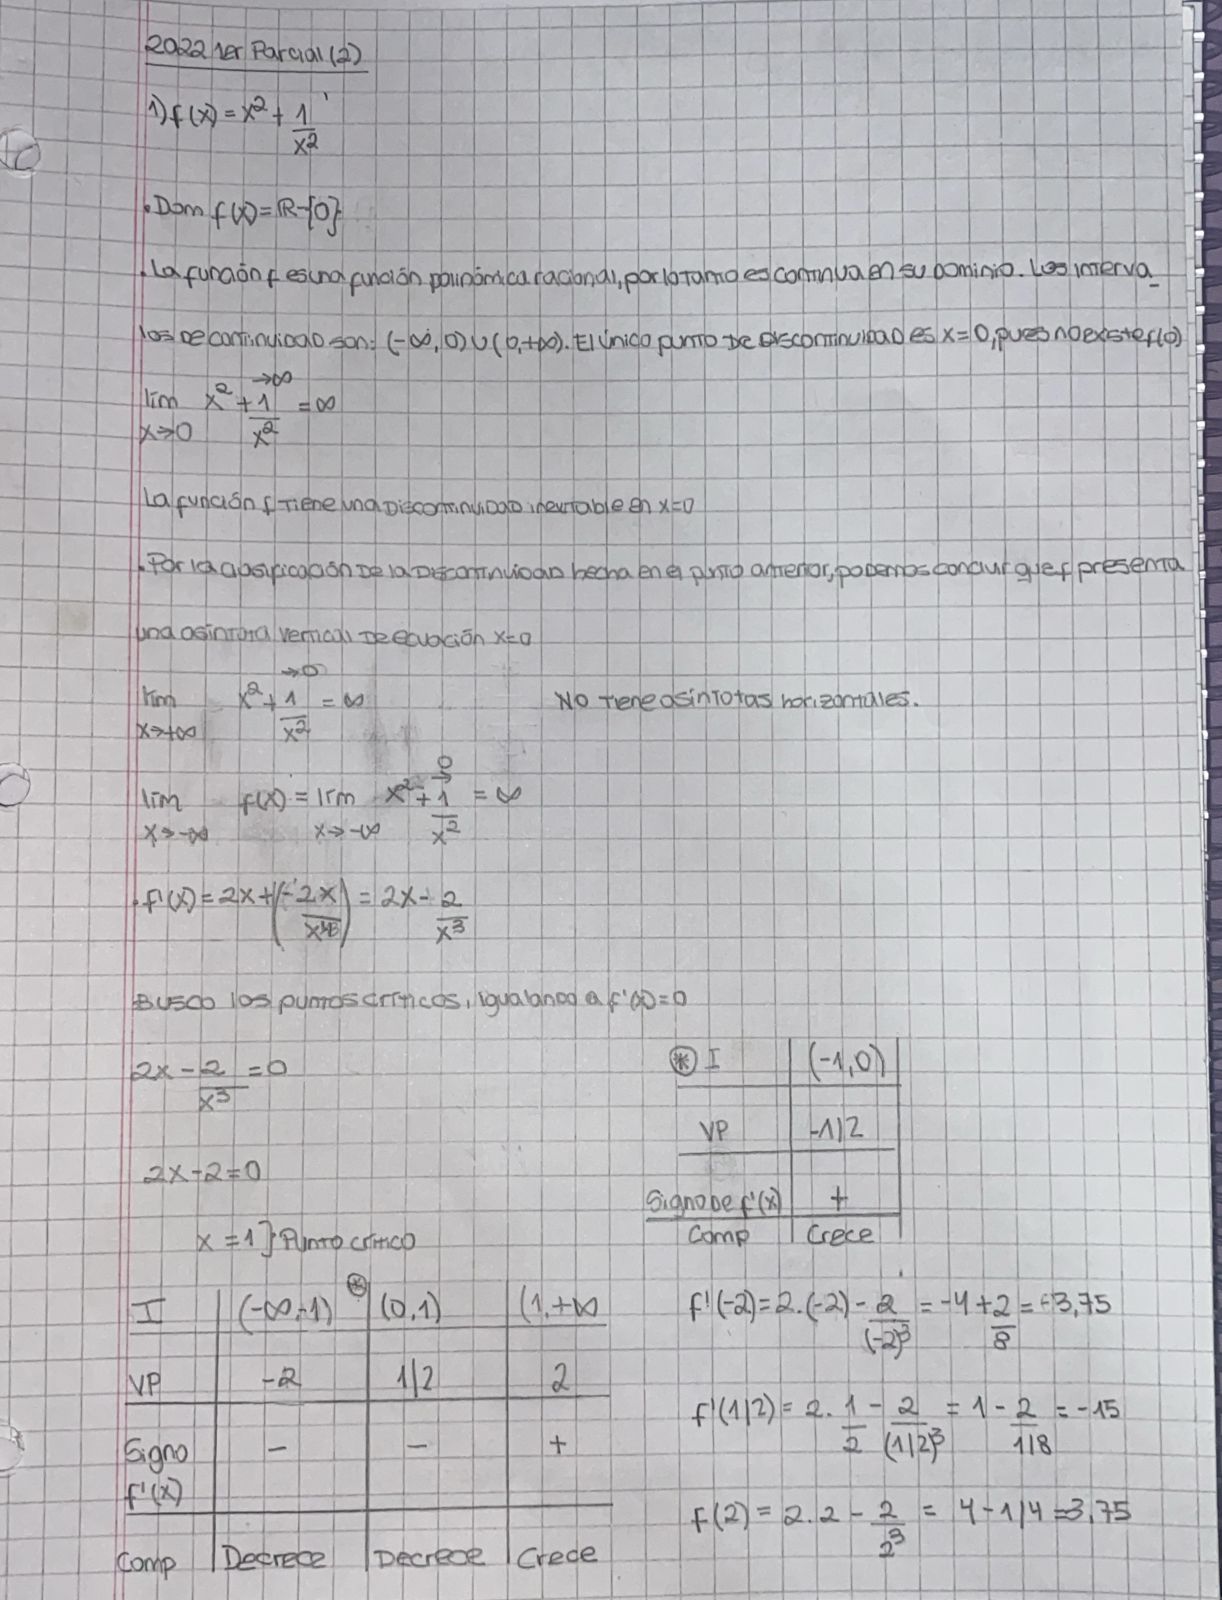 2022 1er Parcial (2)
1) f(x) = x² + 1/x²
. Dom f(x) = ℝ-{0}
. La función f es una función polinómica racional, por lo tanto es continua en su dominio. Los interva_
los de continuidad son: (-∞, 0) ∪ (0, +∞). El único punto de discontinuidad es x = 0, pues no existe f(0)
lim x→0 x² + 1/x² →∞ = ∞
La función f tiene una discontinuidad inevitable en x=0
. Por la clasificación de la discontinuidad hecha en el punto anterior, podemos concluir que f presenta
una asíntota vertical de ecuación x=0
lim x→+∞ x² + 1/x² →0 = ∞ No tiene asíntotas horizontales.
lim x→-∞ f(x) = lim x→-∞ x² + 1/x² →0 = ∞
. f'(x) = 2x + (-2x/x⁴³) = 2x - 2/x³
Busco los puntos críticos, igualando a f'(x)=0
2x - 2/x³ = 0
2x - 2 = 0
x = 1 } Punto crítico
⊛ I | (-1,0)
VP | -1/2
Signo de f'(x) | +
Comp | Crece
I | (-∞,-1) ⊛ | (0,1) | (1,+∞
VP | -2 | 1/2 | 2
Signo f'(x) | - | - | +
Comp | Decrece | Decrece | Crece
f'(-2) = 2.(-2) - 2/(-2)³ = -4 + 2/8 = -3,75
f'(1/2) = 2. 1/2 - 2/(1/2)³ = 1 - 2/1/8 = -15
f(2) = 2.2 - 2/2³ = 4 - 1/4 = 3,75